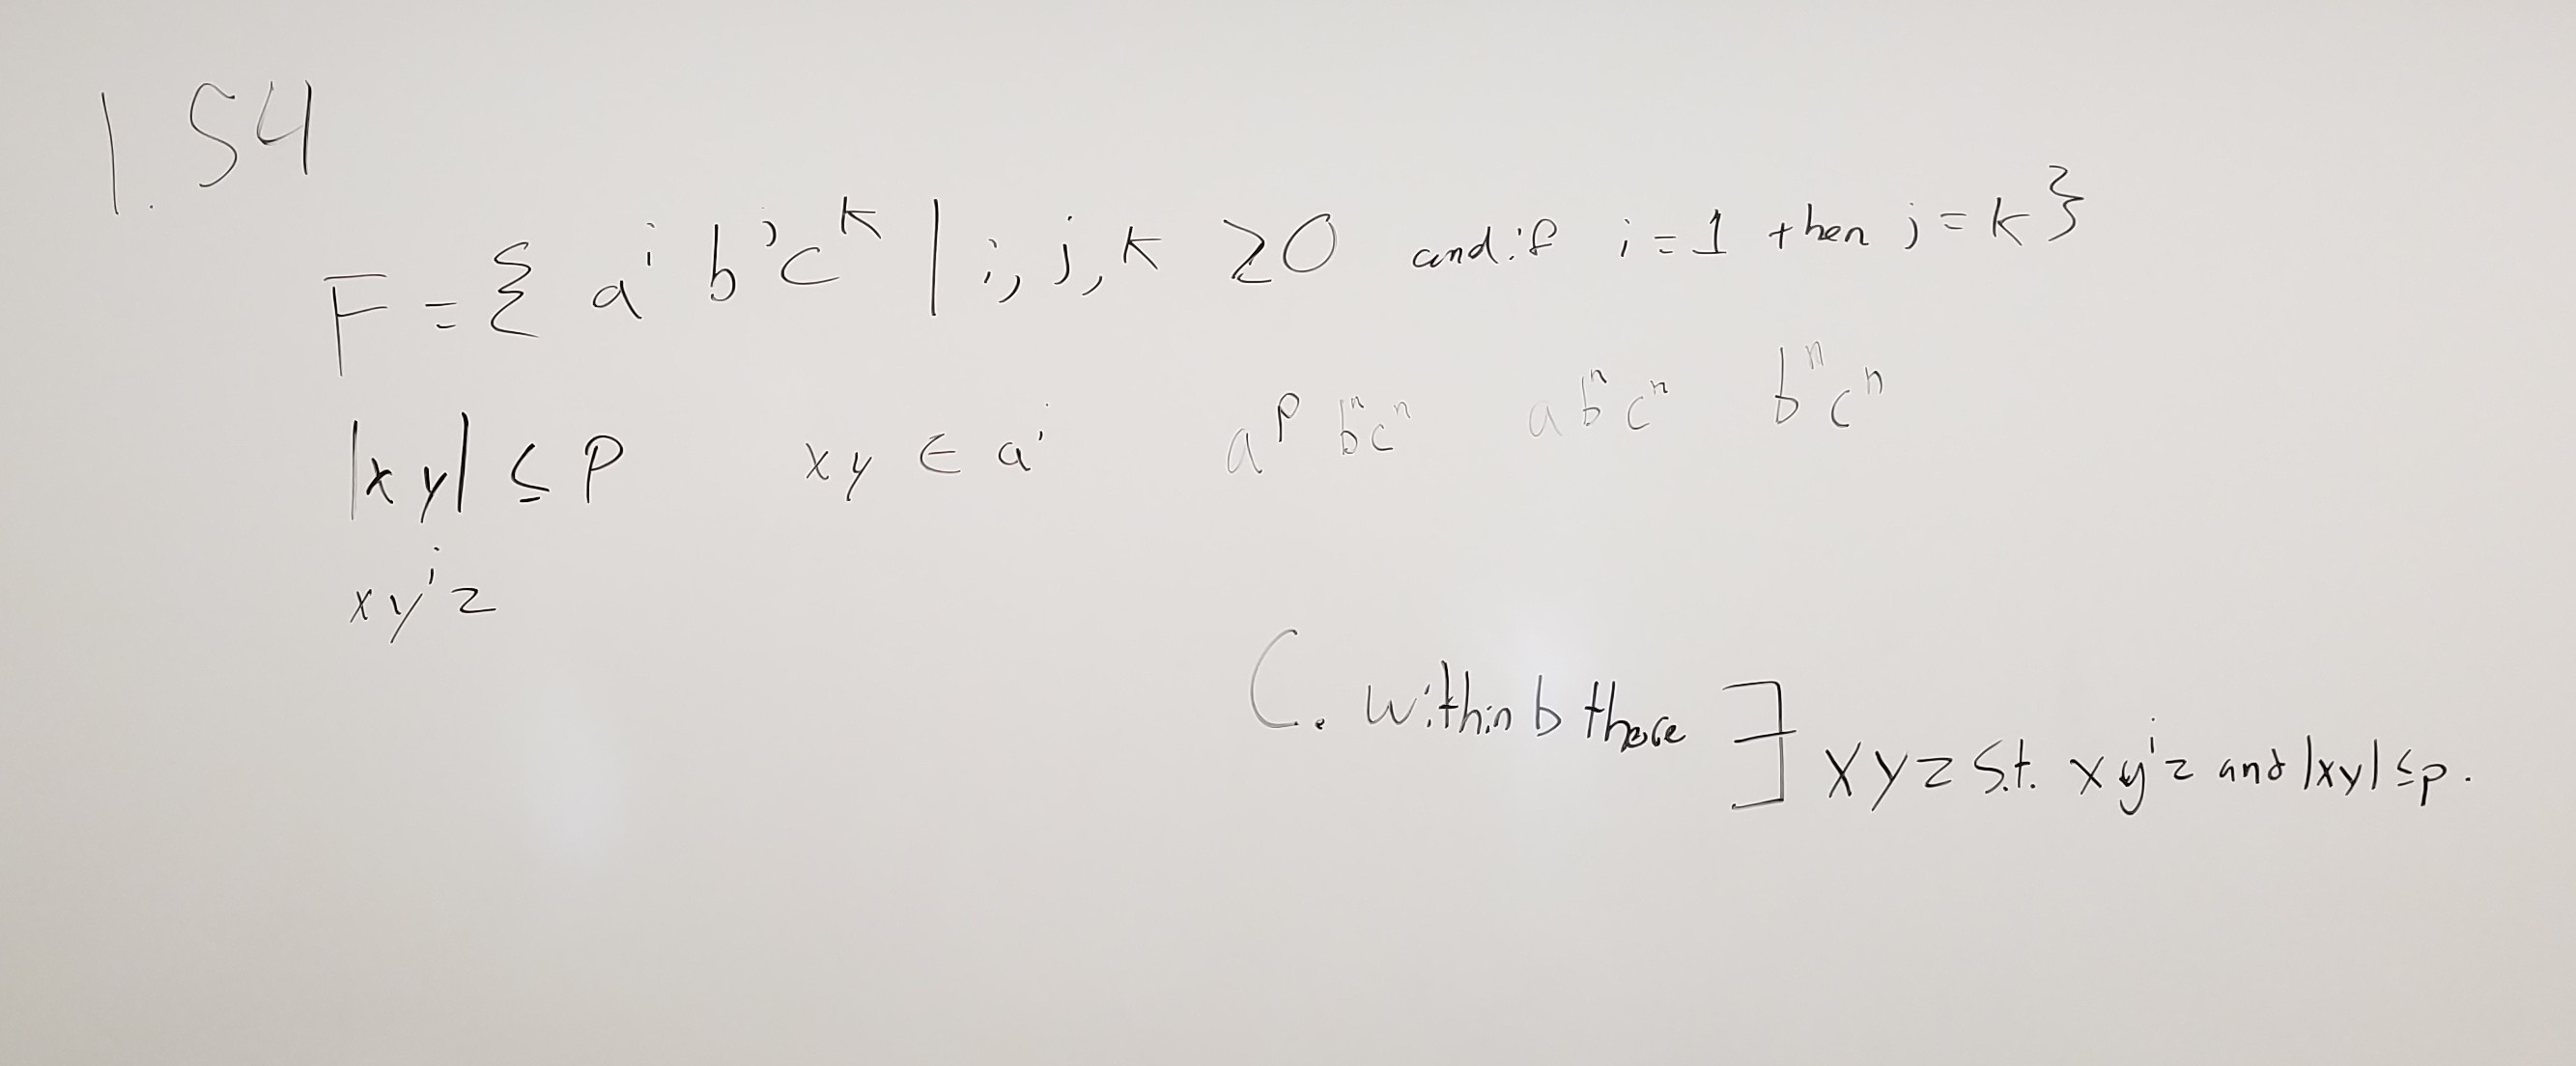 1.54
F = { aⁱ bʲ cᵏ | i, j, k ≥ 0 and if i = 1 then j = k }
|xy| ≤ p xy ∈ aⁱ aᵖ bⁿcⁿ a bⁿ cⁿ bⁿ cⁿ
xyⁱz
C. within b there ∃ xyz s.t. xyⁱz and |xy| ≤ p.